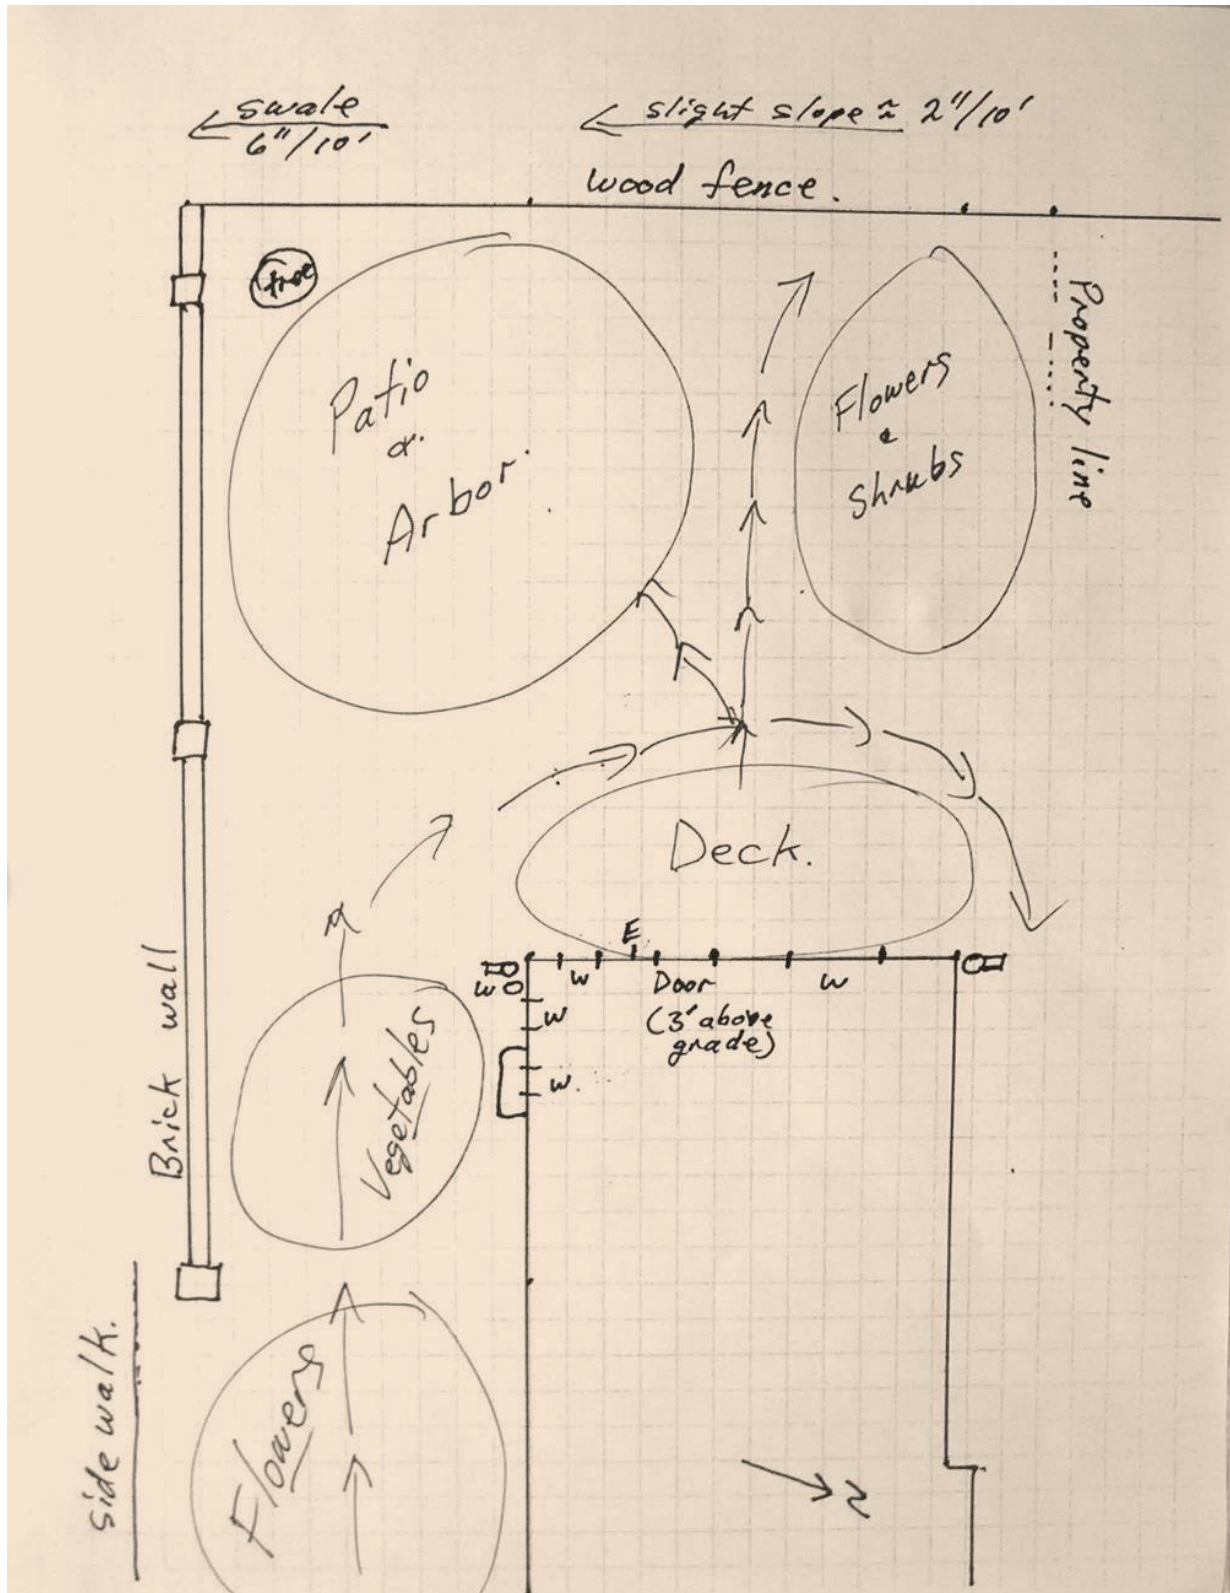 swale
6"/10'
slight slope ≈ 2"/10'
wood fence.
tree
Patio
or.
Arbor.
Flowers
&
Shrubs
Property line
Deck.
E
W
W
Door
W
(3' above
grade)
W
W.
Vegetables
Brick wall
Side walk.
Flowers
N